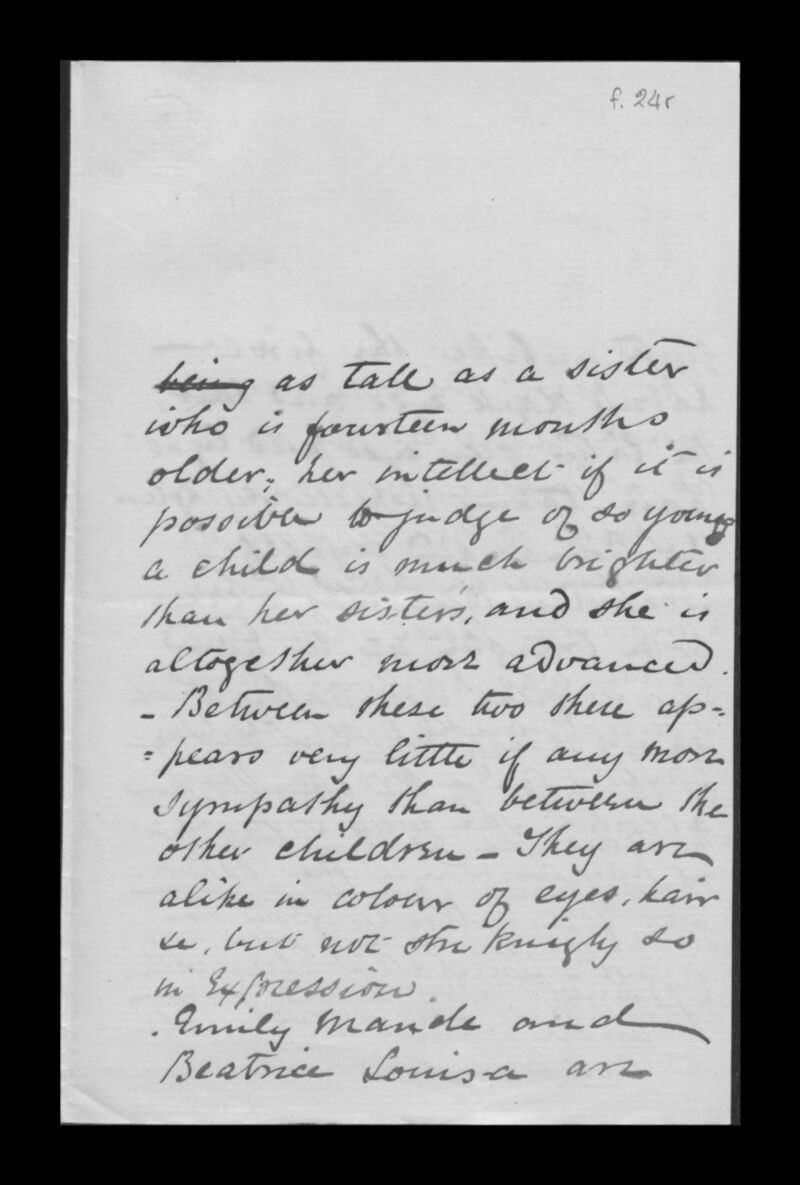 f. 24r
being as tall as a sister
who is fourteen months
older; her intellect if it is
possible to judge of so young
a child is much brighter
than her sister's, and she is
altogether more advanced.
- Between these two there ap=
=pears very little if any more
sympathy than between the
other children - They are
alike in colour of eyes, hair
&c, but not strikingly so
in Expression.
. Emily Maude and
Beatrice Louisa are